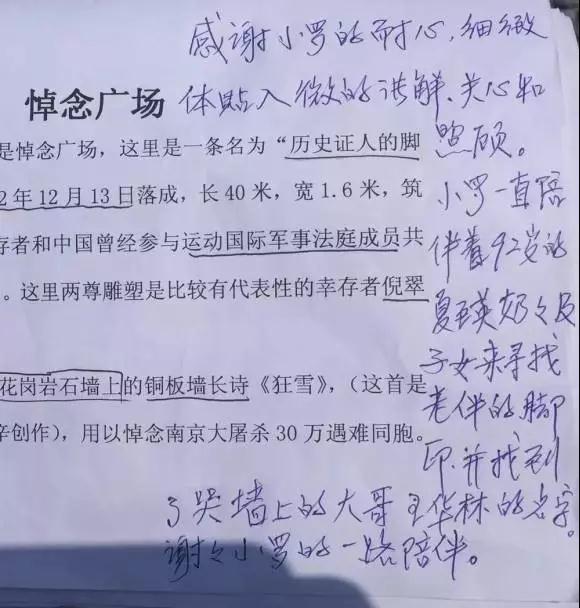 感谢小罗的耐心,细微
悼念广场
体贴入微的讲解、关心和
照顾。
是悼念广场，这里是一条名为“历史证人的脚
2年12月13日落成，长40米，宽1.6米，筑
存者和中国曾经参与运动国际军事法庭成员共
。这里两尊雕塑是比较有代表性的幸存者倪翠
花岗岩石墙上的铜板墙长诗《狂雪》，（这首是
辛创作），用以悼念南京大屠杀30万遇难同胞。
小罗一直陪
伴着92岁的
夏英奶々及
子女来寻找
老伴的脚
印,并找到
了哭墙上的大哥王华林的名字。
谢々小罗的一路陪伴。